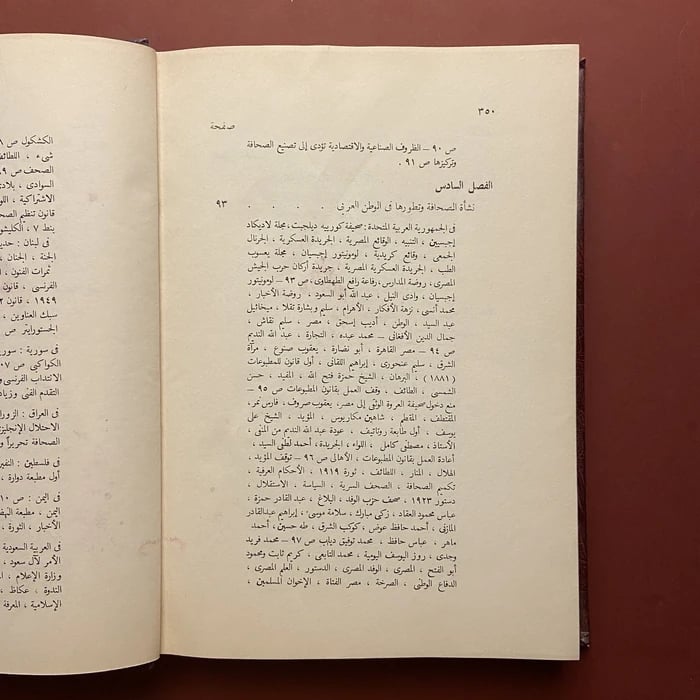 ٣٥٠
صفحة
ص ٩٠ – الظروف الصناعية والاقتصادية تؤدى إلى تصنيع الصحافة
وتركيزها ص ٩١ .
الفصل السادس
نشأة الصحافة وتطورها فى الوطن العربى . . . . ٩٣
فى الجمهورية العربية المتحدة : صحيفة كورييه ديلجيبت، مجلة لاديكاد
إجيبسيين ، التنبيه ، الوقائع المصرية ، الجريدة العسكرية ، الجرنال
الجمعى ، وقائع كريدية ، لومونيتور إجيبسيان ، مجلة يعسوب
الطب ، الجريدة العسكرية المصرية ، جريدة أركان حرب الجيش
المصرى، روضة المدارس، رفاعة رافع الطهطاوى، ص ٩٣ – لومونيتور
إجيبسيان ، وادى النيل ، عبد الله أبو السعود ، روضة الأخبار ،
محمد أنسى ، نزهة الأفكار ، الأهرام ، سليم وبشارة تقلا ، ميخائيل
عبد السيد ، الوطن ، أديب إسحق ، مصر ، سليم نقاش ،
جمال الدين الأفغانى – محمد عبده ، التجارة ، عبد الله النديم
ص ٩٤ – مصر القاهرة ، أبو نضارة ، يعقوب صنوع ، مرآة
الشرق ، سليم عنحورى ، إبراهيم اللقانى ، أول قانون للمطبوعات
( ١٨٨١ ) ، البرهان ، الشيخ حمزة فتح الله ، المفيد ، حسن
الشمسى ، الطائف ، وقف العمل بقانون المطبوعات ص ٩٥ –
منع دخول صحيفة العروة الوثقى إلى مصر، يعقوب صروف، فارس نمر،
المقتطف ، المقطم ، شاهين مكاريوس ، المؤيد ، الشيخ على
يوسف ، أول طابعة روتاتيف ، عودة عبد الله النديم من المنفى ،
الأستاذ ، مصطفى كامل ، اللواء ، الجريدة، أحمد لطفى السيد ،
أعادة العمل بقانون المطبوعات ، الأهالى ص ٩٦ – توقف المؤيد ،
الهلال ، المنار ، اللطائف ، ثورة ١٩١٩ ، الأحكام العرفية ،
تكميم الصحافة ، الصحف السرية ، السياسة ، الاستقلال ،
دستور ١٩٢٣ ، صحف حزب الوفد ، البلاغ ، عبد القادر حمزة ،
عباس محمود العقاد ، زكى مبارك ، سلامة موسى ، إبراهيم عبدالقادر
المازنى ، أحمد حافظ عوض ، كوكب الشرق ، طه حسين ، أحمد
ماهر ، عباس حافظ ، محمد توفيق دياب ص ٩٧ – محمد فريد
وجدى ، روز اليوسف اليومية ، محمد التابعى ، كريم ثابت ومحمود
أبو الفتح ، المصرى ، الوفد المصرى ، الدستور ، العلم المصرى ،
الدفاع الوطنى ، الصرخة ، مصر الفتاة ، الإخوان المسلمين ،
الكشكول ص
شىء ، اللطائف
الصحف ص
السوادى ، بلادى
الاشتراكية ، اللو
قانون تنظيم الصحـ
بنط ٧ ، الكليشيه
فى لبنان : حديـ
الجنة ، الجنان ،
ثمرات الفنون ،
الفرنسى ، قانون
١٩٤٩ ، قانون
سبك العناوين ،
الجستورايتر ص
فى سورية : سور
الكواكبى ص
الانتداب الفرنسى و
التقدم الفنى وزياد
فى العراق : الزورا
الاحتلال الإنجليزى
الصحافة تحريراً و
فى فلسطين : النفير
أول مطبعة دوارة ،
فى اليمن : ص
اليمن ، مطبعة
الأخبار ، الثورة ،
فى العربية السعودية
الأمر لآل سعود ،
وزارة الإعلام ،
الندوة ، عكاظ ،
الإسلامية ، المعرفة